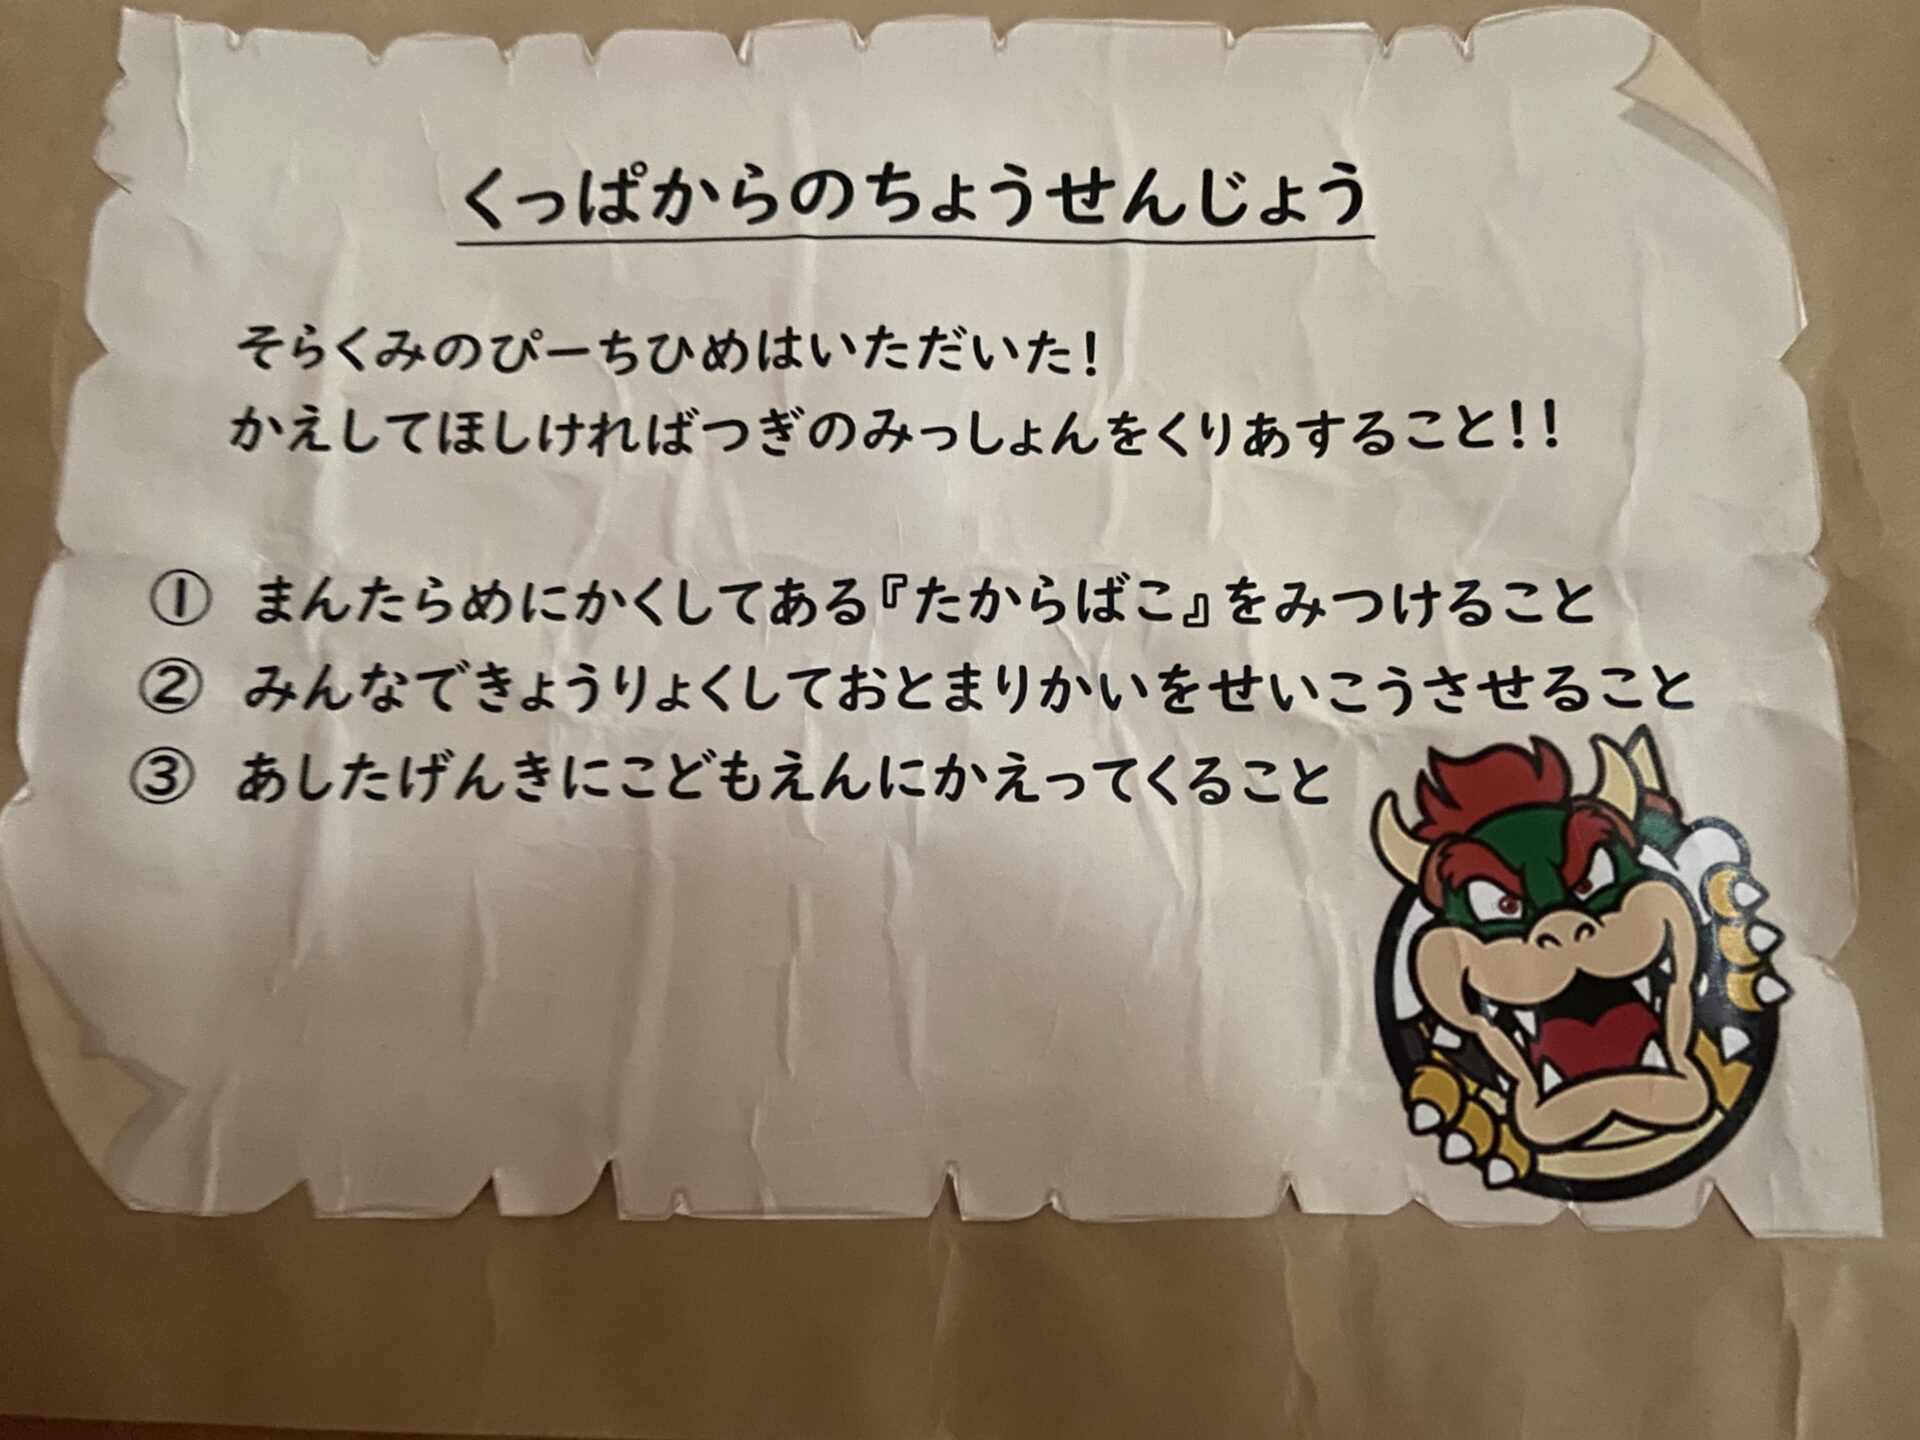 くっぱからのちょうせんじょう
そらくみのぴーちひめはいただいた!
かえしてほしければつぎのみっしょんをくりあすること!!
① まんたらめにかくしてある『たからばこ』をみつけること
② みんなできょうりょくしておとまりかいをせいこうさせること
③ あしたげんきにこどもえんにかえってくること